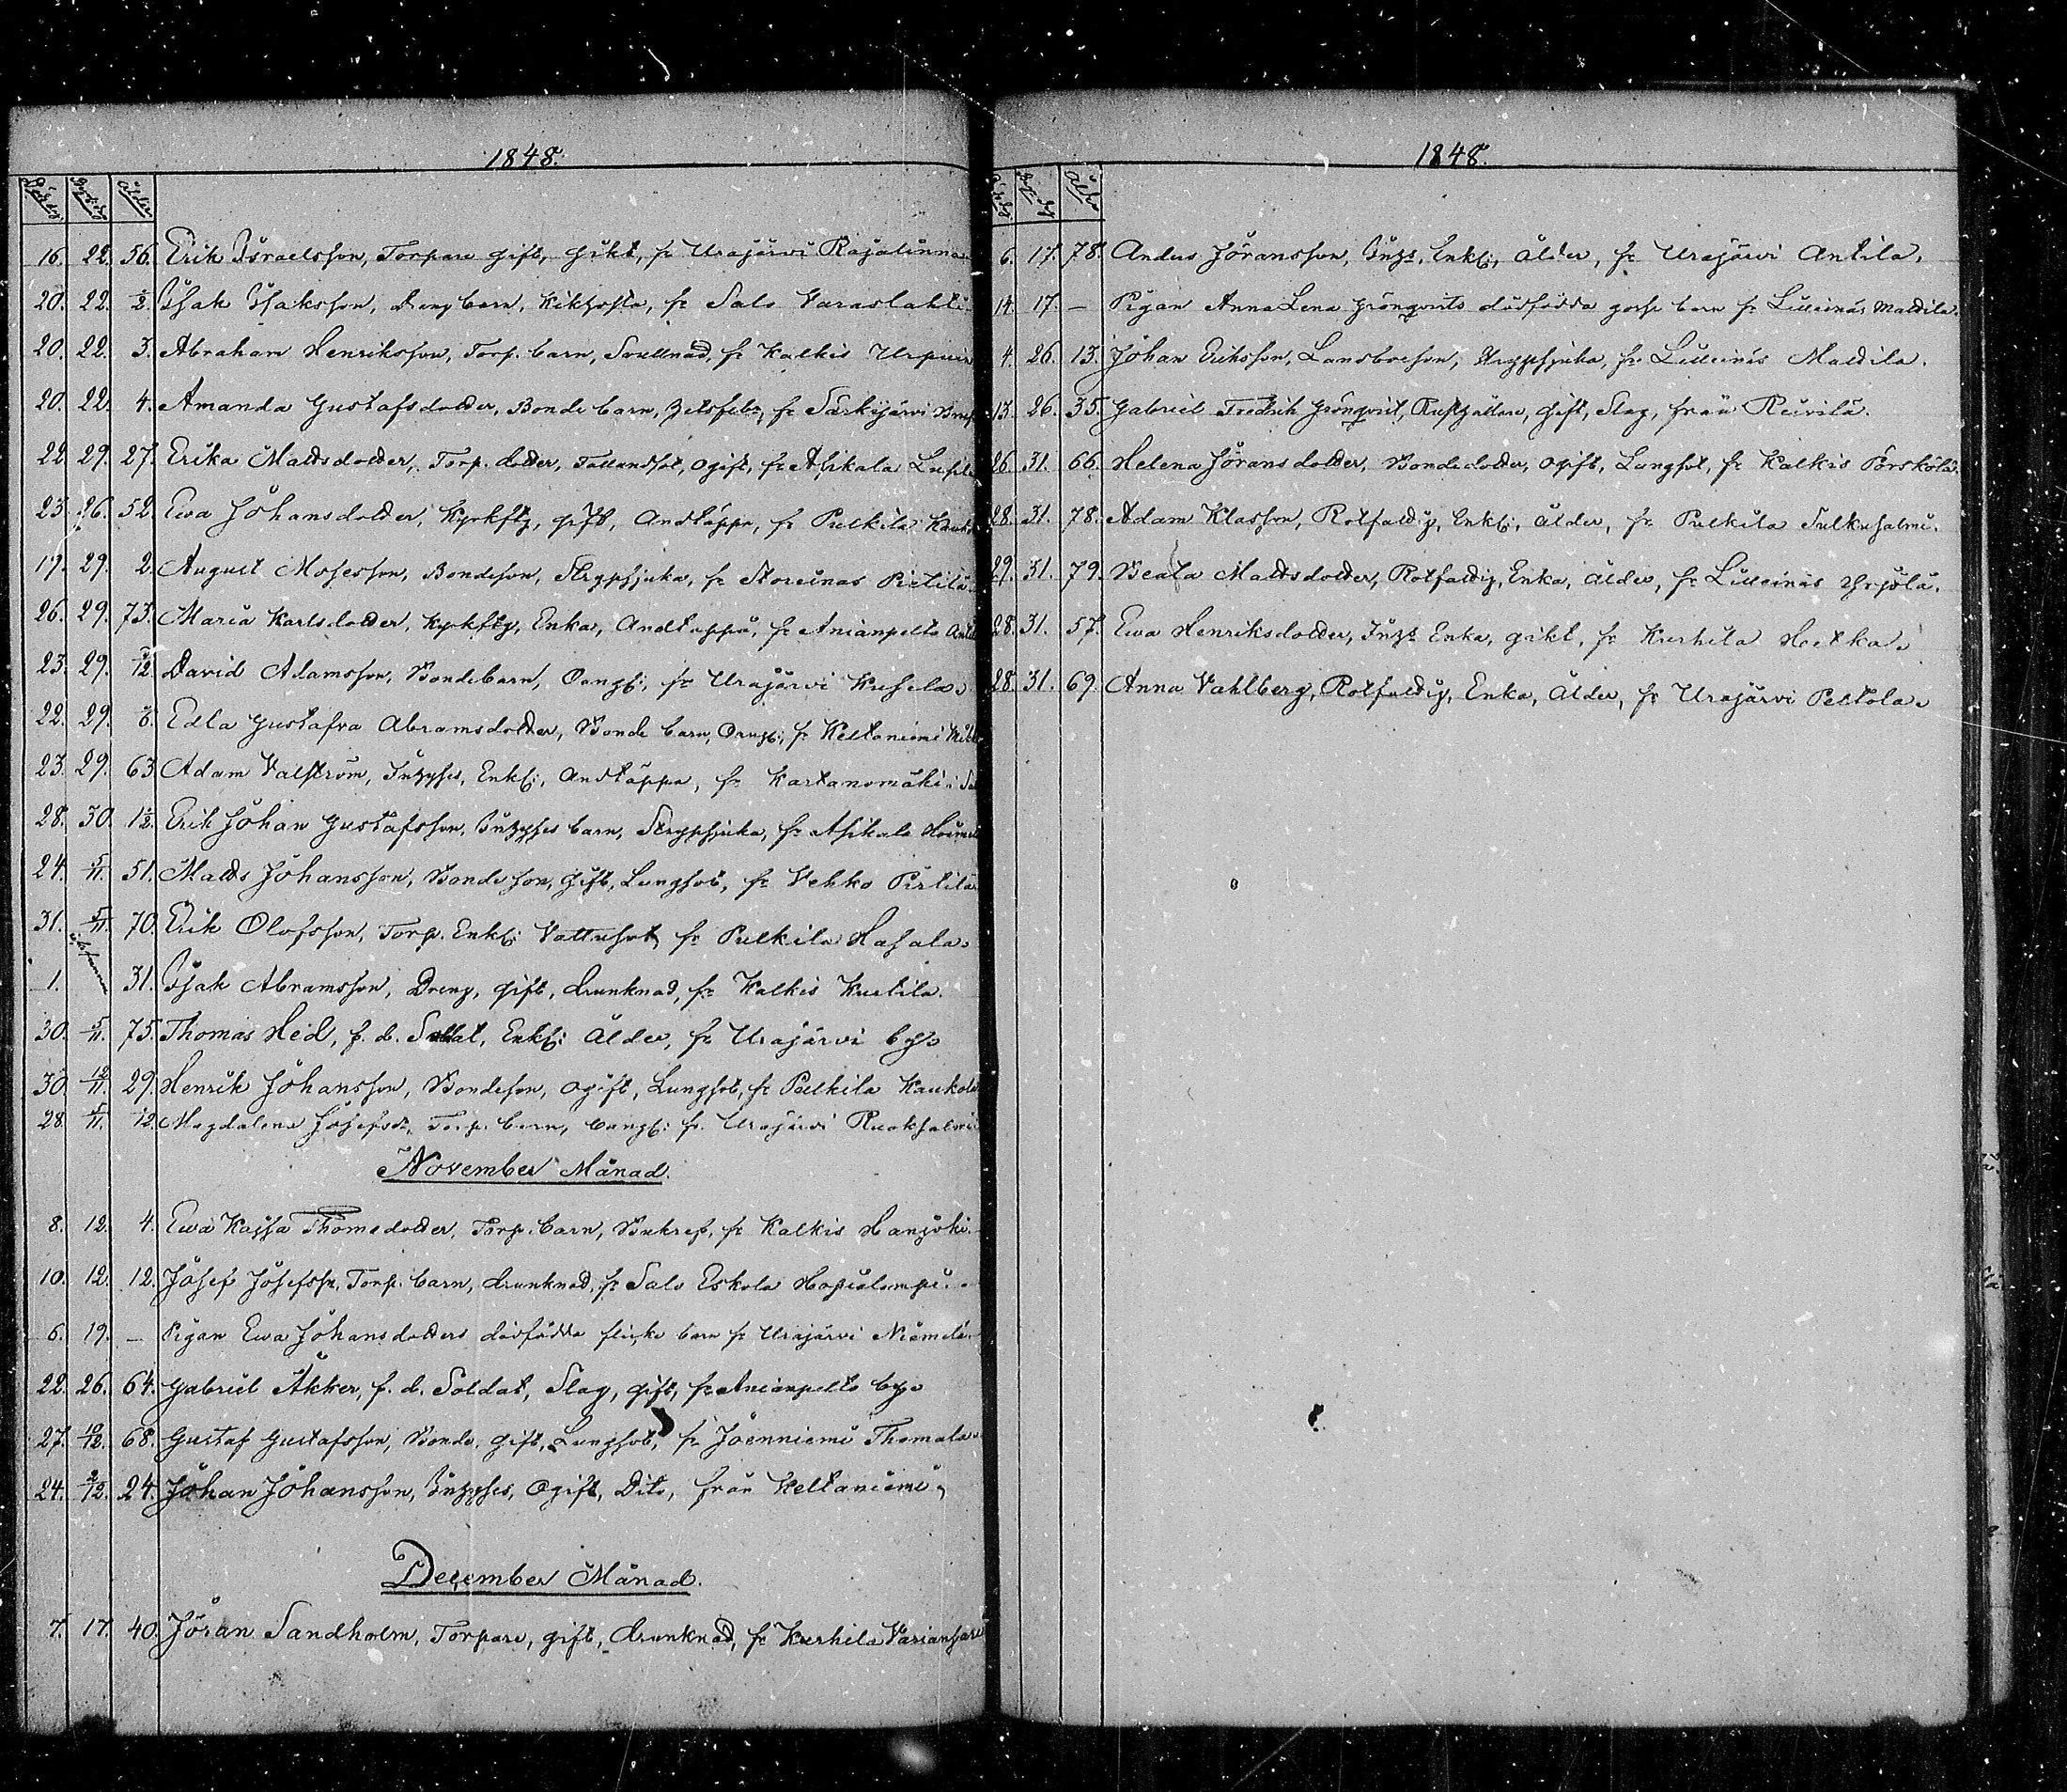 1848.
Ålder
16. 22. 56. Erik Israelsson, Torpare gift, gikt, fr Urajärvi Rajalinna
20. 22. ½. Isak Isaksson, Dreng barn, Kikhosta, fr Salo Varaslahti
20. 22. 3. Abraham Henriksson, Torp. barn, Svullnad, fr Kalkis
20. 22. 4. Amanda Gustafsdotter, Bonde barn, fr Särkijärvi
22. 29. 27. Erika Mattsdotter, Torp. dotter, ogift, fr Asikala
23. 26. 52. Ewa Johansdotter, gift, Andtäppa, fr Pulkila
19. 29. 2. August Mosesson, Bondeson, Strypsjuka, fr Storeinas Pietilä
26. 29. 73. Maria Karlsdotter, Enka, Andtäppa, fr Anianpelto
23. 29. David Adamsson, Bondebarn, fr Urajärvi Kusela.
22. 29. Edla Gustafva Abramsdotter, Bonde barn, fr Keltaniemi
23. 29. 63 Adam Valström, Inhyses, Enkl: Andtäppa, fr Kartanomäki
28. 30. 1½. Erik Johan Gustafsson, Inhyses barn, Strypsjuka, fr Asikala
24. 5/11. 51. Matts Johansson, Bonde son, gift, Lungsot, fr Vehko Pietilä
31. 5/11. 70. Erik Olofsson, Torp. Enkl: Vattusot, fr Pulkila Hasala.
1. 31. Isak Abramsson, Dreng, gift, drunknad, fr Kalkis Kurtila.
30. 5/11. 75. Thomas Heid, f. d. Soldat, Enkl: Ålder, fr Urajärvi by.
30. 12/11. 29. Henrik Johansson, Bondeson, ogift, Lungsot, fr Pulkila Kaukola
28. 5/11. Magdalena Josefsd:, Torp. barn, fr. Urajärvi Ruoksalmi
November Månad.
8. 12. 4. Ewa Kajsa Thomedotter, Torp. barn, fr Kalkis Hanjoki.
10. 12. 12. Josef Josefss, Torp. barn, drunknad, fr Salo Eskola Hopialampi.
6. 19. – Pigan Ewa Johansdotters dödfödda flicke barn fr Urajärvi Niemelä.
22. 26. 64. Gabriel Åkker, f. d. Soldat, Slag, gift, fr Anianpelto by.
27. 10/12. 68. Gustaf Gustafsson, Bonde, gift, Lungsot, fr Joenniemi Thomala.
24. 2/12. 24. Johan Johansson, Inhyses, Ogift, Dito, från Keltaniemi,
December Månad.
7. 17. 40. Jöran Sandholm, Torpare, gift, drunknad, fr Kurhila
1848.
Ålder
6. 17. 78. Anders Jöransson, Inhs, Enkl:, Ålder, fr Urajärvi Antila.
14. 17. – Pigan Anna Lena Grönqvists dödfödda gosse barn fr Lilleinäs Mattila.
4. 26. 13. Johan Eriksson, Landboeson, Strypsjuka, fr Lilleinäs Mattila.
13. 26. 35. Gabriel Fredrik Grönqvist, Rusthållare, gift, Slag, från Ruvila.
26. 31. 66. Helena Jöransdotter, Bondedotter, ogift, Lungsot, fr Kalkis Porskola.
28. 31. 78. Adam Klasson, Rotfattig, Enkl:, Ålder, fr Pulkila Sulkusalmi.
29. 31. 79. Beata Mattsdotter, Rotfattig, Enka, Ålder, fr Lilleinäs Yrjölä.
28. 31. 57. Ewa Henriksdotter, Inhs Enka, gikt, fr Kurhila Hietka.
28. 31. 69. Anna Vahlberg, Rotfattig, Enka, Ålder, fr Urajärvi Peltola.